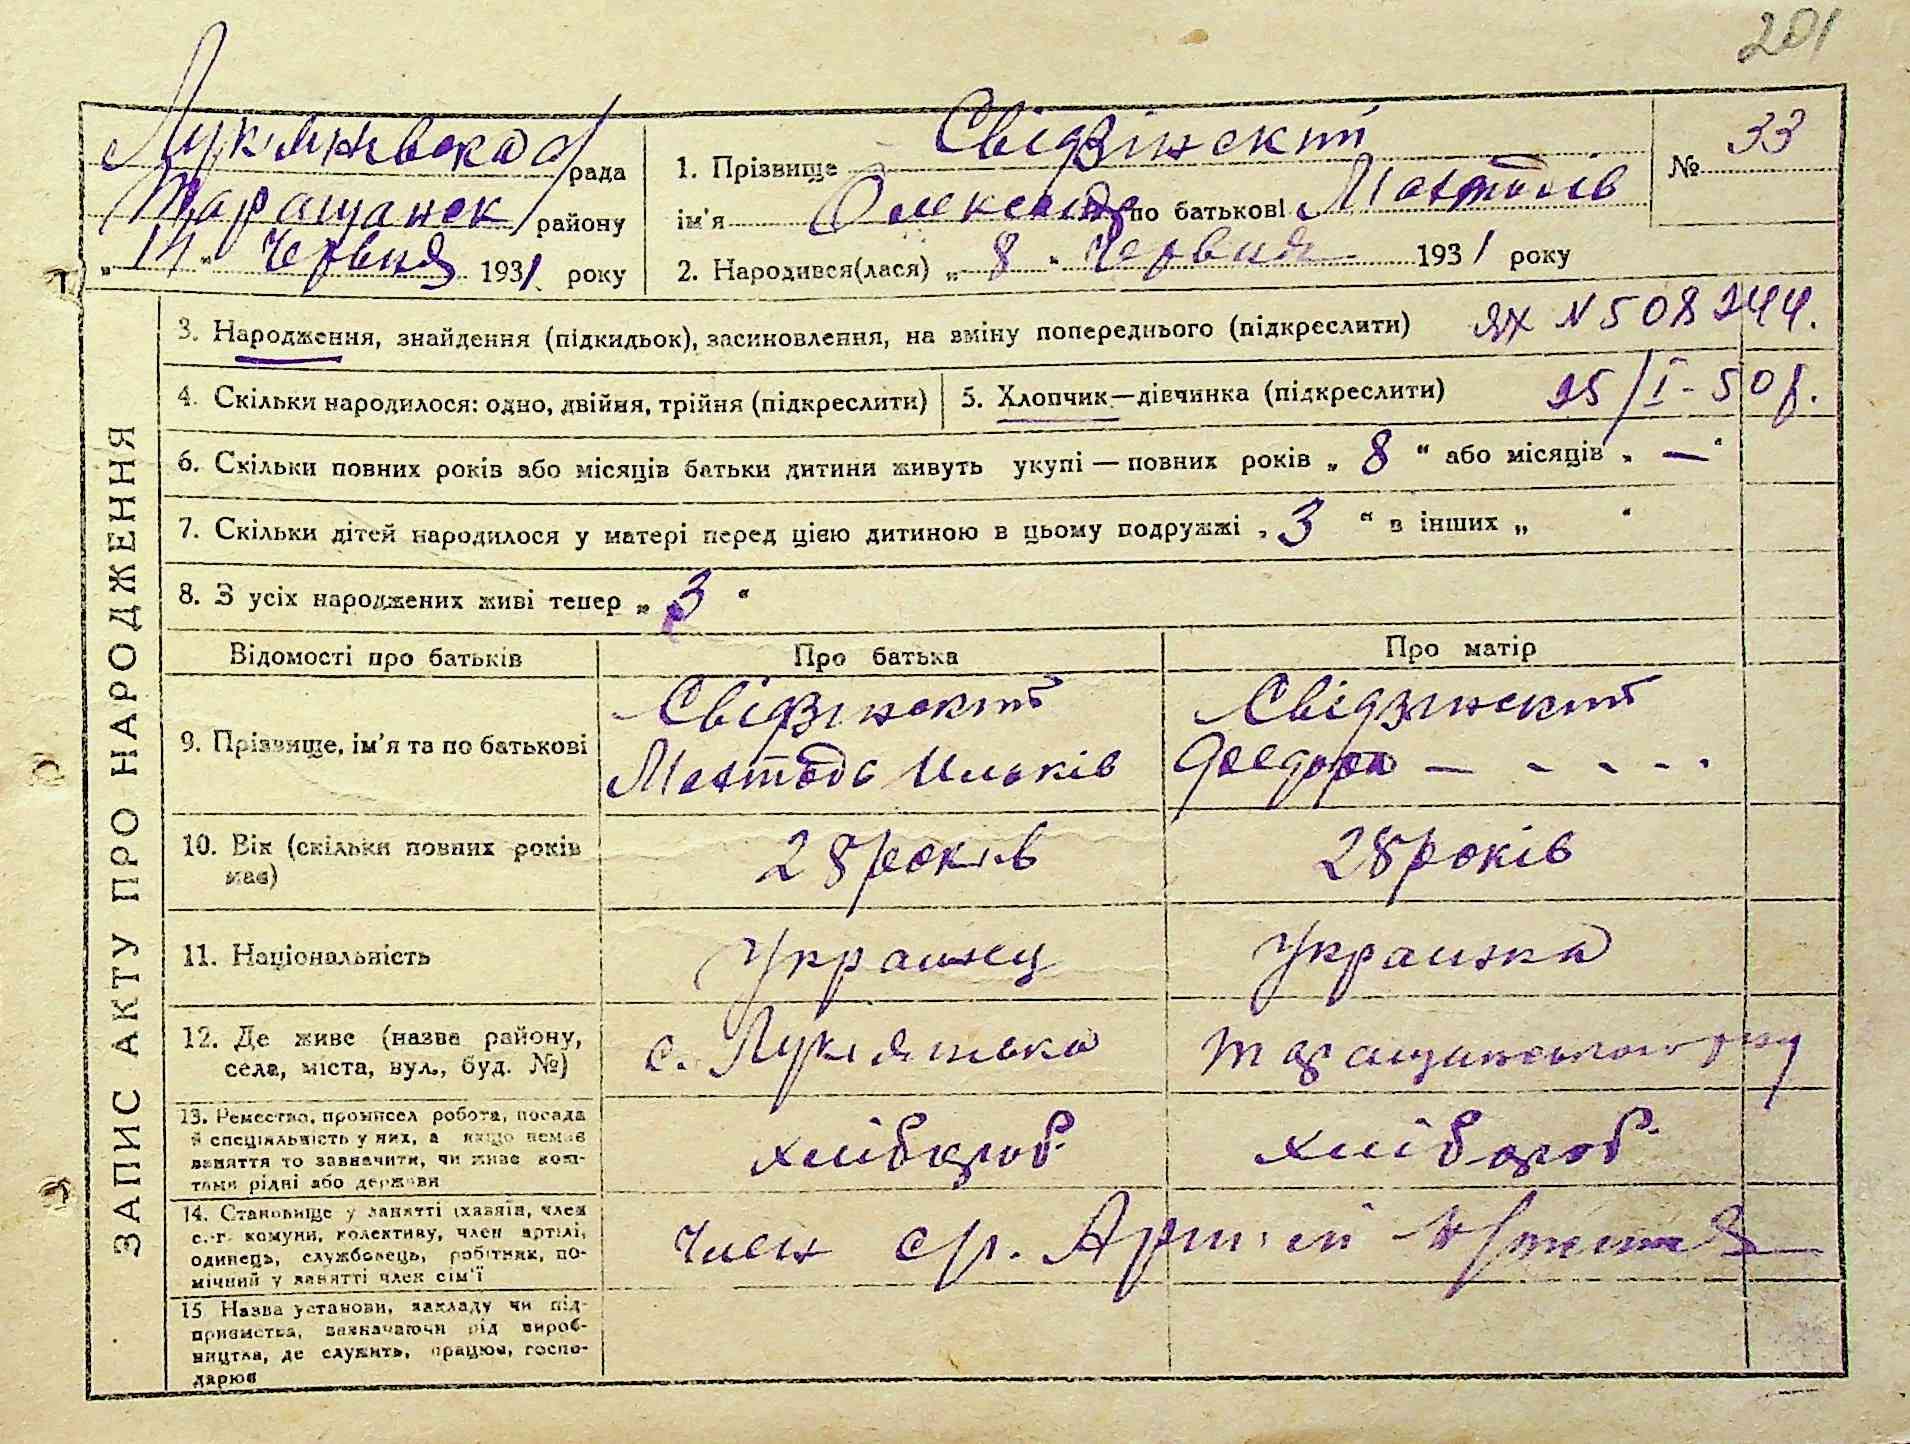 201
Лук'янівська рада
Таращанськ району
„14" Червня 1931 року
1. Прізвище Свідзінский
№ 33
ім'я Олександр по батькові Методів
2. Народився(лася) „8" Червня 1931 року
ЗАПИС АКТУ ПРО НАРОДЖЕННЯ
3. Народження, знайдення (підкидьок), засиновлення, на вміну попереднього (підкреслити) ЯХ N 508244.
4. Скільки народилося: одно, двійня, трійня (підкреслити)
5. Хлопчик—дівчинка (підкреслити) 25/I-50 р.
6. Скільки повних років або місяців батьки дитини живуть укупі — повних років „8" або місяців „—"
7. Скільки дітей народилося у матері перед цією дитиною в цьому подружжі „3" в інших „ "
8. З усіх народжених живі тепер „3"
Відомості про батьків
Про батька
Про матір
9. Прізвище, ім'я та по батькові
Свідзінский
Методь Ильків
Свідзінский
Федора — - - - -
10. Вік (скільки повних років має)
28 років
28 років
11. Національність
Украинец
Украинка
12. Де живе (назва району,
села, міста, вул., буд. №)
с. Лукіянівка
Таращанського р-ну
13. Ремество, промисел робота, посада
й спеціяльність у них, а якщо немає
заняття то зазначити, чи живе кош-
тами рідні або держави
хлібороб.
хлібороб.
14. Становище у занятті (хазяїн, член
с.-г. комуни, колективу, член артілі,
одинець, службовець, робітник, по-
мічний у занятті член сім'ї
член ср. Артілі
15 Назва установи, закладу чи під-
приємства, зазначаючи рід вироб-
ництва, де служить, працює, госпо-
дарює